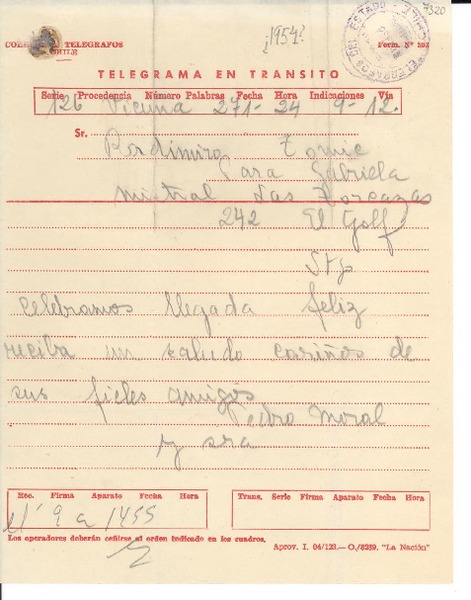 7320
¿1954?
CORREOS Y TELEGRAFOS
CHILE
Form. Nº
TELEGRAFOS DEL ESTADO
TELEGRAMA EN TRANSITO
Serie Procedencia Número Palabras Fecha Hora Indicaciones Vía
126 Vicuna 271- 24 9-12.
Sr.
Radimiro Tomic
Para Gabriela
Mistral Las Torcazas
242 El Golf
Stgo
Celebramos llegada feliz
reciba un saludo cariños de
sus fieles amigos
Pedro Moral
y sra
Rec. Firma Aparato Fecha Hora
Trans. Serie Firma Aparato Fecha Hora
9 a 1455
Los operadores deberán ceñirse al orden indicado en los cuadros.
Aprov. I. 04/123.—O./8239. "La Nación"